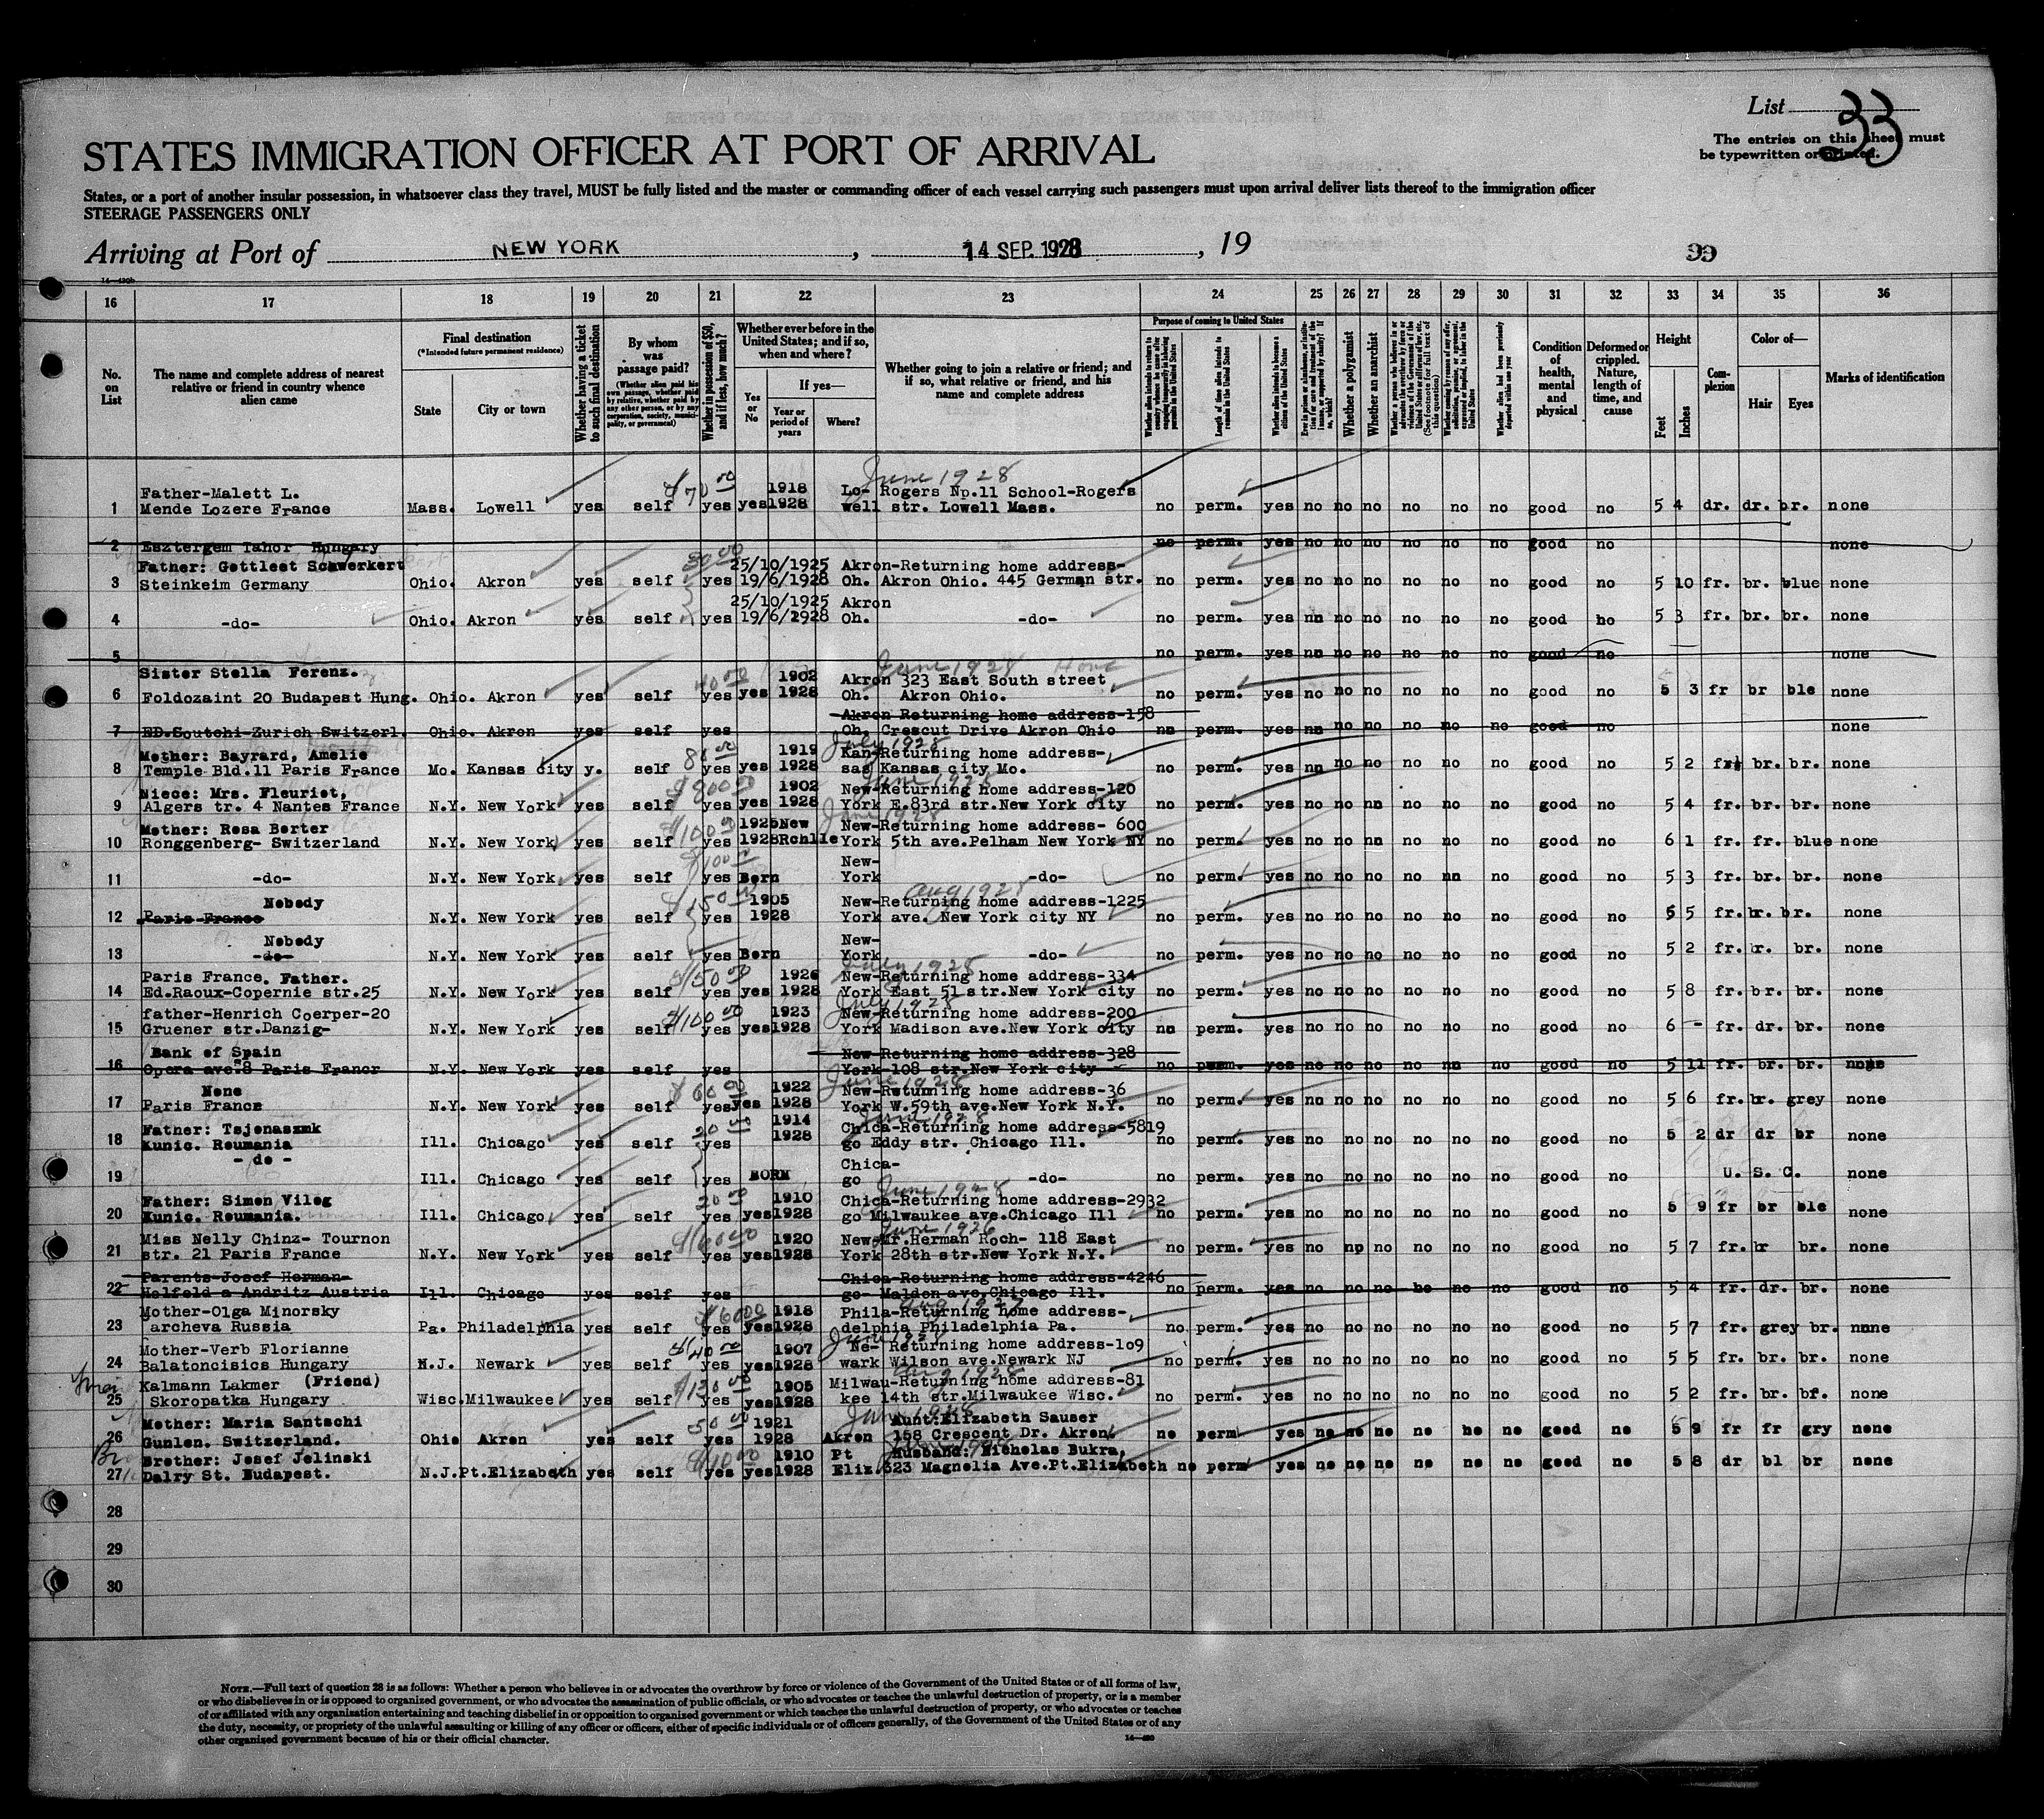 List 33
The entries on this sheet must
be typewritten or printed.
STATES IMMIGRATION OFFICER AT PORT OF ARRIVAL
States, or a port of another insular possession, in whatsoever class they travel, MUST be fully listed and the master or commanding officer of each vessel carrying such passengers must upon arrival deliver lists thereof to the immigration officer
STEERAGE PASSENGERS ONLY
Arriving at Port of NEW YORK, 14 SEP. 1928, 19
99
16 17 18 19 20 21 22 23 24 25 26 27 28 29 30 31 32 33 34 35 36
No. on List
The name and complete address of nearest relative or friend in country whence alien came
Final destination
(*Intended future permanent residence)
State
City or town
Whether having a ticket to such final destination
By whom was passage paid?
(Whether alien paid his own passage, whether paid by relative, whether paid by any other person, or by any corporation, society, municipality, or government)
Whether in possession of $50, and if less, how much?
Whether ever before in the United States; and if so, when and where?
Yes or No
If yes—
Year or period of years
Where?
Whether going to join a relative or friend; and if so, what relative or friend, and his name and complete address
Purpose of coming to United States
Length of time alien intends to remain in the United States
Whether alien intends to become a citizen of the United States
Whether a polygamist
Whether an anarchist
Condition of health, mental and physical
Deformed or crippled. Nature, length of time, and cause
Height
Feet
Inches
Complexion
Color of—
Hair
Eyes
Marks of identification
June 1928
Father-Malett L. $70 00 1918 Lo- Rogers No.11 School-Rogers
1 Mende Lozere France Mass. Lowell yes self yes yes 1928 well str. Lowell Mass. no perm. yes no no no no no no good no 5 4 dr. dr. br. none
2 Esztergem Tahor Hungary no perm. yes no no no no no no good no none
Father: Gottleet Schwerkert 30 00 25/10/1925 Akron-Returning home address-
3 Steinkeim Germany Ohio. Akron yes self yes 19/6/1928 Oh. Akron Ohio. 445 German str. no perm. yes no no no no no no good no 5 10 fr. br. blue none
25/10/1925 Akron
4 -do- Ohio. Akron yes self yes 19/6/1928 Oh. -do- no perm. yes no no no no no no good no 5 3 fr. br. br. none
5 no perm. yes no no no no no no good no none
June 1928
Sister Stella Ferenz. 40 00 1902 Akron 323 East South street
6 Foldozaint 20 Budapest Hung. Ohio. Akron yes self yes yes 1928 Oh. Akron Ohio. no perm. yes no no no no no no good no 5 3 fr br ble none
Akron Returning home address-158
7 ED.Soutchi-Zurich Switzerl. Ohio. Akron yes self yes Oh. Crescut Drive Akron Ohio no perm. yes no no no no no no good no none
July 1928
Mother: Bayrard, Amelie 80 00 1919 Kan-Returning home address-
8 Temple Bld.11 Paris France Mo. Kansas city y. self yes yes 1928 sas Kansas city Mo. no perm. yes no no no no no no good no 5 2 fr. br. br. none
June 1928
Niece: Mrs. Fleuriet, $800 00 1902 New-Returning home address-120
9 Algers tr. 4 Nantes France N.Y. New York yes self yes yes 1928 York E.83rd str.New York city no perm. yes no no no no no no good no 5 4 fr. br. br. none
June 1928
Mother: Rosa Berter $100 00 1925 New New-Returning home address- 600
10 Ronggenberg- Switzerland N.Y. New York yes self yes 1928 Rchlle York 5th ave.Pelham New York NY no perm. yes no no no no no no good no 6 1 fr. fr. blue none
$100 00 New-
11 -do- N.Y. New York yes self yes Born York -do- no perm. yes no no no no no no good no 5 3 fr. br. br. none
Aug 1928
Nobody $150 00 1905 New-Returning home address-1225
12 Paris France N.Y. New York yes self yes 1928 York ave. New York city NY no perm. yes no no no no no no good no 5 5 fr. br. br. none
Nobody New-
13 -do- N.Y. New York yes self yes Born York -do- no perm. yes no no no no no no good no 5 2 fr. br. br. none
July 1928
Paris France. Father. $150 00 1926 New-Returning home address-334
14 Ed.Raoux-Copernie str.25 N.Y. New York yes self yes yes 1928 York East 51 str.New York city no perm. yes no no no no no no good no 5 8 fr. br. br. none
July 1928
father-Henrich Coerper-20 $100 00 1923 New-Returning home address-200
15 Gruener str.Danzig- N.Y. New York yes self yes yes 1928 York Madison ave.New York city no perm. yes no no no no no no good no 6 - fr. dr. br. none
Bank of Spain New-Returning home address-328
16 Opera ave.8 Paris Francr N.Y. New York yes self yes York-108 str.New York city no perm. yes no no no no no no good no 5 11 fr. br. br. none
June 1928
None $60 00 1922 New-Returning home address-36
17 Paris France N.Y. New York yes self yes yes 1928 York W.59th ave.New York N.Y. no perm. yes no no no no no no good no 5 6 fr. br. grey none
June 1928
Father: Tsjenaszmk 20 00 1914 Chica-Returning home address-5819
18 Kunic. Roumania Ill. Chicago yes self yes 1928 go Eddy str. Chicago Ill. no perm. yes no no no no no no good no 5 2 dr dr br none
- do - Chica-
19 Ill. Chicago yes self yes BORN go -do- no perm. yes no no no no no no good no U. S. C. none
June 1928
Father: Simon Vileg 20 00 1910 Chica-Returning home address-2932
20 Kunic. Roumania. Ill. Chicago yes self yes yes 1928 go Milwaukee ave.Chicago Ill no perm. yes no no no no no no good no 5 9 fr br ble none
June 1926
Miss Nelly Chinz- Tournon 1920 New-Mr.Herman Roch- 118 East
21 str. 21 Paris France N.Y. New York yes self yes yes 1928 York 28th str.New York N.Y. no perm. yes no no no no no no good no 5 7 fr. br br. none
Parents-Josef Herman- Chica-Returning home address-4246
22 Helfeld a Andritz Austria Ill. Chicago yes self yes go- Malden ave.Chicago Ill. no perm. yes no no no no no no good no 5 4 fr. dr. br. none
Mother-Olga Minorsky $60 00 1918 Phila-Returning home address-
23 archeva Russia Pa. Philadelphia yes self yes yes 1928 delphia Philadelphia Pa. no perm. yes no no no no no no good no 5 7 fr. grey br. none
June 1928
Mother-Verb Florianne $40 00 1907 Ne- Returning home address-109
24 Balatoncisics Hungary N.J. Newark yes self yes yes 1928 wark Wilson ave.Newark NJ no perm. yes no no no no no no good no 5 5 fr. br. br. none
Kalmann Lakmer (Friend) $130 00 1905 Milwau-Returning home address-81
25 Skoropatka Hungary Wisc. Milwaukee yes self yes yes 1928 kee 14th str.Milwaukee Wisc. no perm. yes no no no no no no good no 5 2 fr. br. br. none
Mother: Maria Santschi 50 00 1921 Aunt:Elizabeth Sauser
26 Gunlen. Switzerland. Ohio Akron yes self yes 1928 Akron 158 Crescent Dr. Akron. no perm yes no no no no no no good no 5 9 fr fr gry none
Brother: Josef Jelinski 1910 Pt Husband: Nicholas Bukra,
27 Dalry St. Budapest. N.J. Pt.Elizabeth yes self yes yes 1928 Eliz. 323 Magnolia Ave.Pt.Elizabeth no perm yes no no no no no no good no 5 8 dr bl br none
28
29
30
NOTE.—Full text of question 28 is as follows: Whether a person who believes in or advocates the overthrow by force or violence of the Government of the United States or of all forms of law,
or who disbelieves in or is opposed to organized government, or who advocates the assassination of public officials, or who advocates or teaches the unlawful destruction of property, or is a member
of or affiliated with any organization entertaining and teaching disbelief in or opposition to organized government or which teaches the unlawful destruction of property, or who advocates or teaches
the duty, necessity, or propriety of the unlawful assaulting or killing of any officer or officers, either of specific individuals or of officers generally, of the Government of the United States or of any
other organized government because of his or their official character.